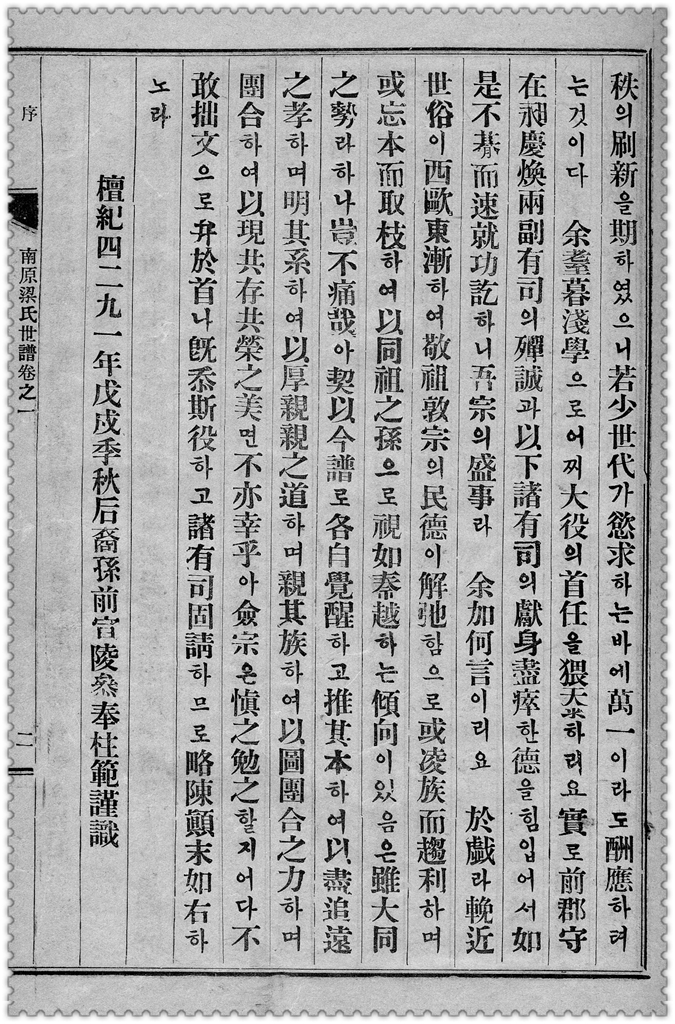 秩의刷新을期하였으니若少世代가慾求하는바에萬一이라도酬應하려
는것이다 余耋暮淺學으로어찌大役의首任을猥하리요 實로前郡守
在昶慶煥兩副有司의殫誠과以下諸有司의獻身盡瘁한德을힘입어서如
是不朞而速就功訖하니吾宗의盛事라 余加何言이리요 於戱라輓近
世俗이西歐東漸하여敬祖敦宗의民德이解弛함으로或凌族而趨利하며
或忘本而取枝하여以同祖之孫으로視如秦越하는傾向이있음은雖大同
之勢라하나豈不痛哉아契以今譜로各自覺醒하고推其本하여以盡追遠
之孝하며明其系하여以厚親親之道하며親其族하여以圖團合之力하며
團合하여以現共存共榮之美면不亦幸乎아僉宗은愼之勉之할지어다不
敢拙文으로弁於首나旣忝斯役하고諸有司固請하므로略陳顚末如右하
노라
檀紀四二九一年戊戌季秋后裔孫前官陵參奉柱範謹識
序
南原梁氏世譜卷之一
二